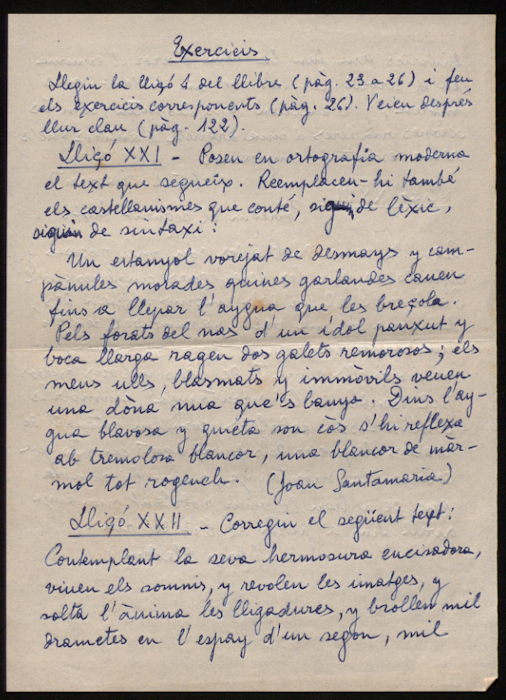 Exercicis
Llegiu la lliçó 4 del llibre (pàg. 23 a 26) i feu
els exercicis corresponents (pàg. 26). Veieu després
llur clau (pàg. 122).
Lliçó XXI - Poseu en ortografia moderna
el text que segueix. Reemplaceu-hi també
els castellanismes que conté, de lèxic,
de sintaxi:
Un estanyol vorejat de desmays y cam-
pànules morades quines garlandes cauen
fins a llepar l'aygua que les breçola.
Pels forats del nas d'un ídol panxut y
boca llarga ragen dos galets remorosos; els
meus ulls, blasmats y immòvils veuen
una dòna nua que's banya. Dins l'ay-
gua blavosa y quieta son còs s'hi reflexa
ab tremolosa blancor, una blancor de màr-
mol tot rogench. (Joan Santamaria)
Lliçó XXII - Corregiu el següent text:
Contemplant la seva hermosura encisadora,
viuen els somnis, y revolen les imatges, y
solta l'ànima les lligadures, y brollen mil
drametes en l'espay d'un segon, mil